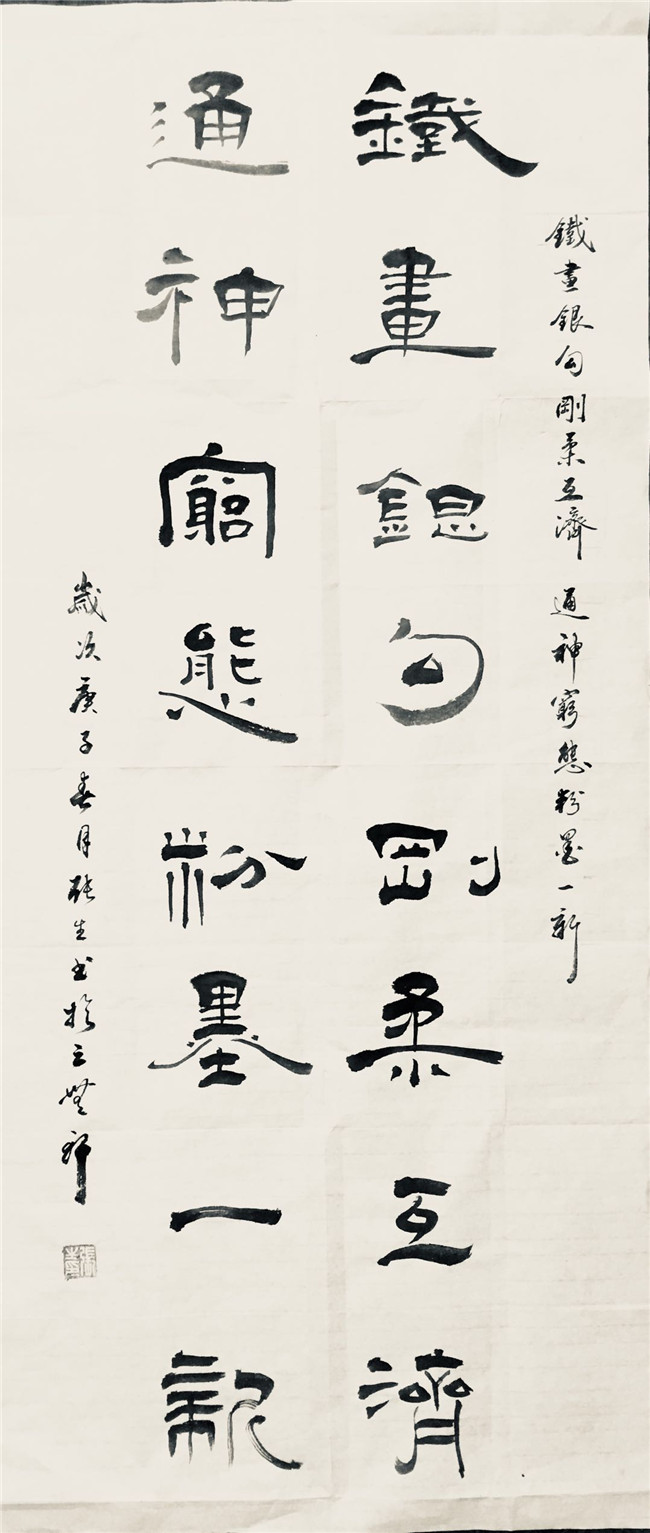 鐵畫銀勾剛柔互濟通神窮態粉墨一新
鐵畫銀勾剛柔互濟
通神窮態粉墨一新
歲次庚子春月張生書於三無軒